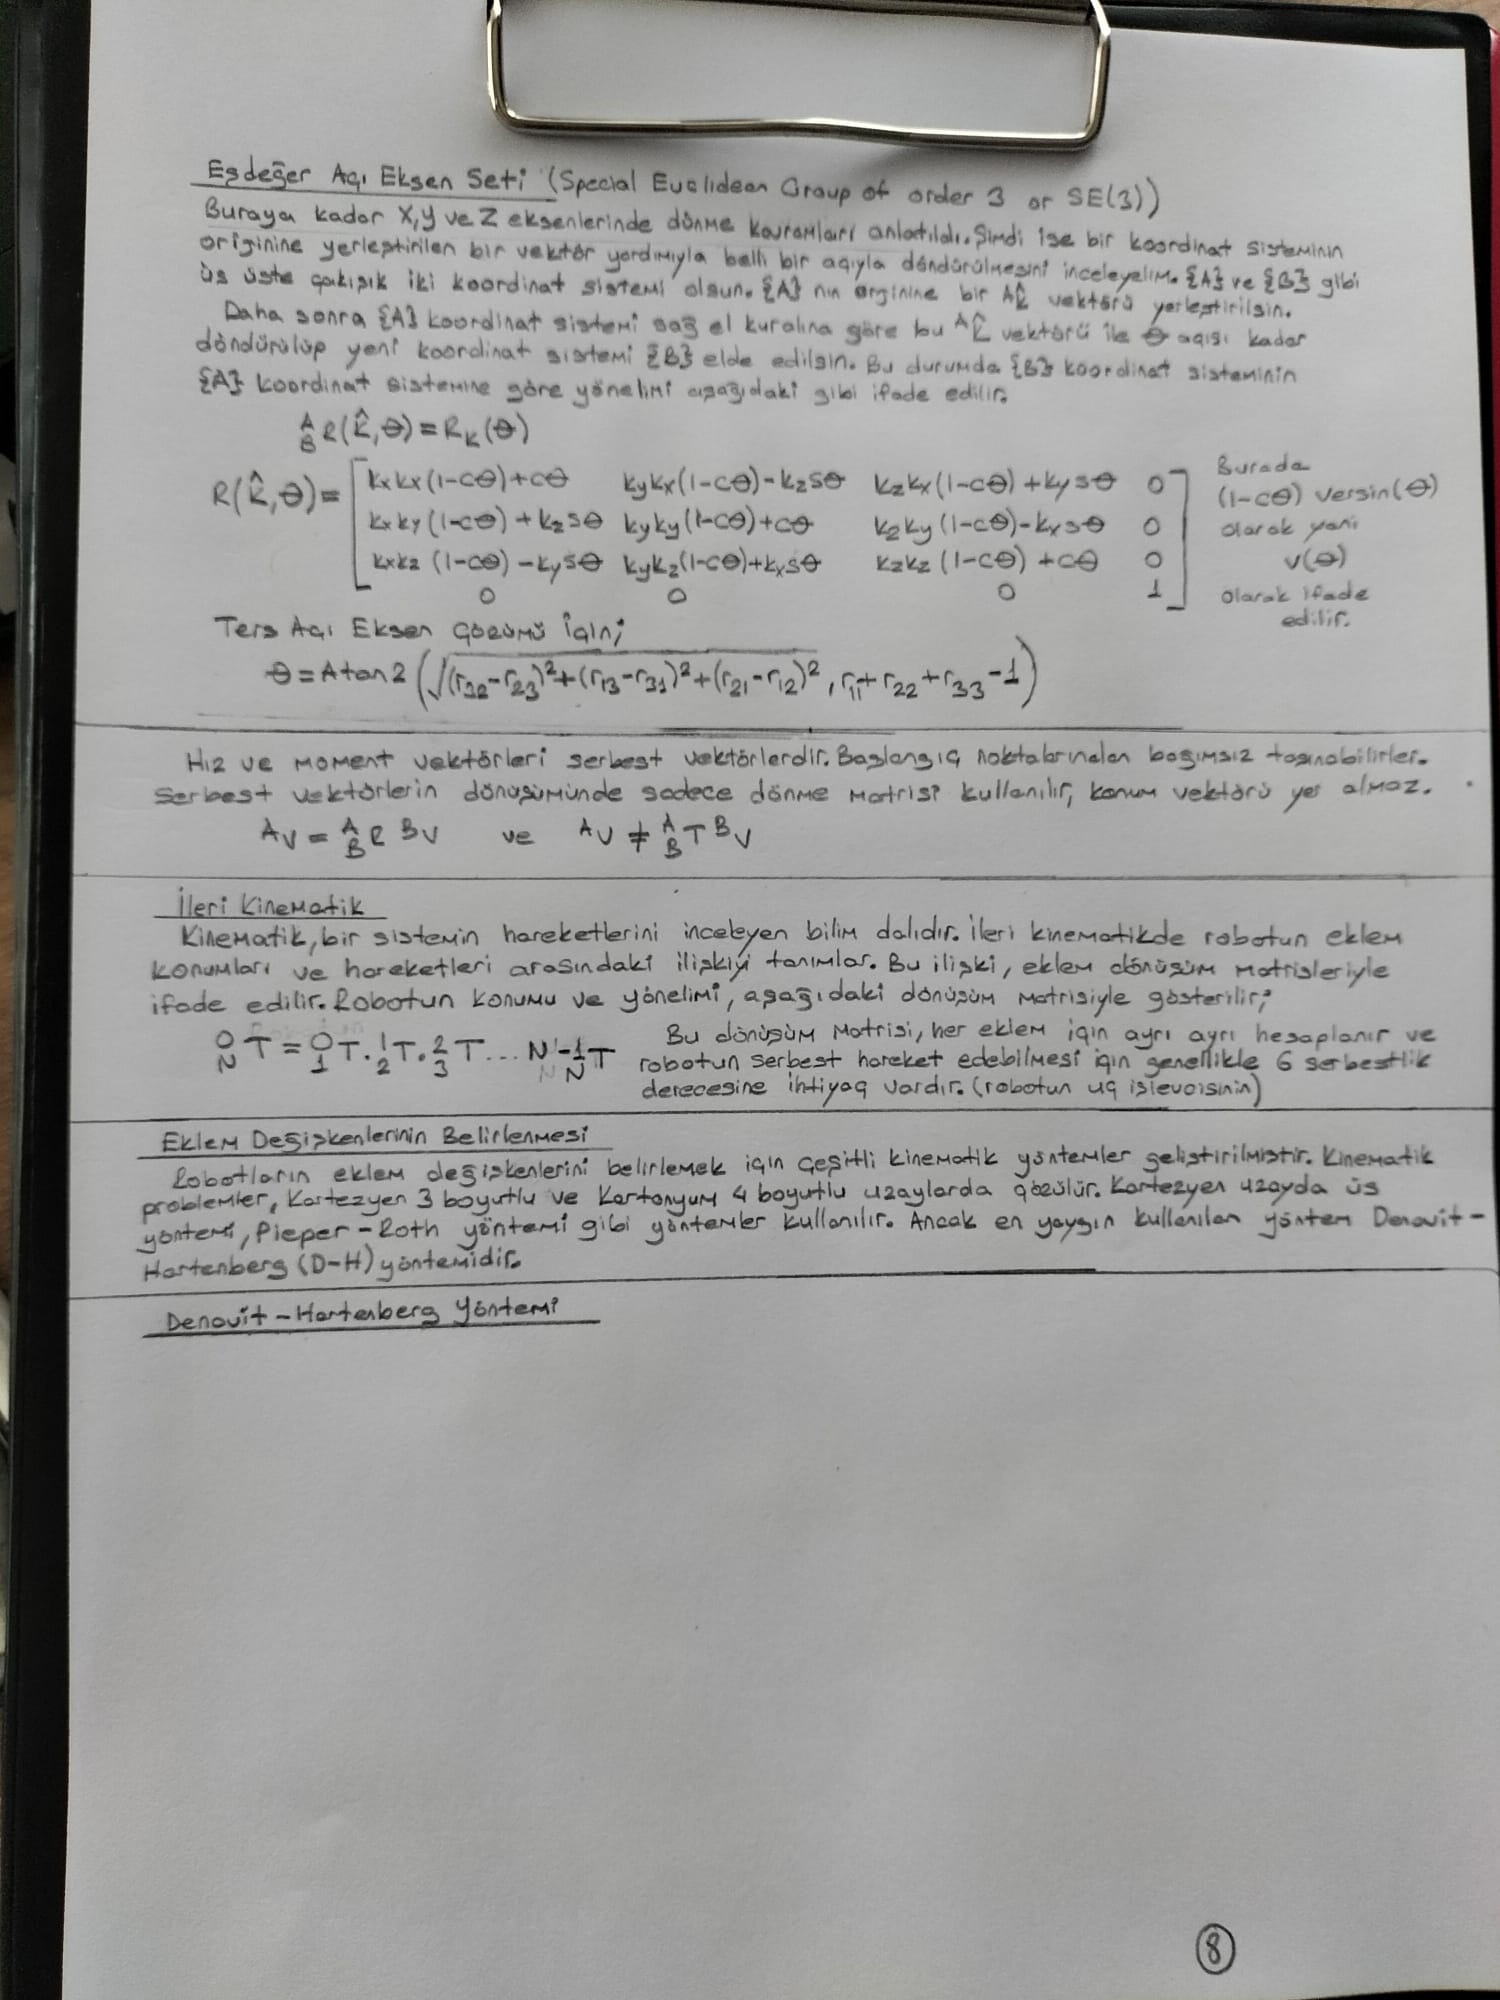 Eşdeğer Açı Eksen Seti (Special Euclidean Group of order 3 or SE(3))
Buraya kadar X,Y ve Z eksenlerinde dönme kavramları anlatıldı. Şimdi ise bir koordinat sisteminin
originine yerleştirilen bir vektör yardımıyla belli bir açıyla döndürülmesini inceleyelim. {A} ve {B} gibi
üs üste çakışık iki koordinat sistemi olsun. {A} nın orginine bir ᴬK̂ vektörü yerleştirilsin.
Daha sonra {A} koordinat sistemi sağ el kuralına göre bu ᴬK̂ vektörü ile θ açısı kadar
döndürülüp yeni koordinat sistemi {B} elde edilsin. Bu durumda {B} koordinat sisteminin
{A} koordinat sistemine göre yönelimi aşağıdaki gibi ifade edilir.
ᴬ_B R(K̂,θ) = R_K(θ)
R(K̂,θ) = [ kxkx(1-cθ)+cθ kykx(1-cθ)-kzsθ kzkx(1-cθ)+kysθ 0
kxky(1-cθ)+kzsθ kyky(1-cθ)+cθ kzky(1-cθ)-kxsθ 0
kxkz(1-cθ)-kysθ kykz(1-cθ)+kxsθ kzkz(1-cθ)+cθ 0
0 0 0 1 ]
Burada
(1-cθ) versin(θ)
olarak yani
v(θ)
olarak ifade
edilir.
Ters Açı Eksen Çözümü İçin;
θ = Atan2(√((r₃₂-r₂₃)²+(r₁₃-r₃₁)²+(r₂₁-r₁₂)²), r₁₁+r₂₂+r₃₃-1)
Hız ve moment vektörleri serbest vektörlerdir. Başlangıç noktalarından bağımsız taşınabilirler.
Serbest vektörlerin dönüşümünde sadece dönme matrisi kullanılır, konum vektörü yer almaz.
ᴬV = ᴬ_B R ᴮV ve ᴬV ≠ ᴬ_B T ᴮV
İleri Kinematik
Kinematik, bir sistemin hareketlerini inceleyen bilim dalıdır. İleri kinematikde robotun eklem
konumları ve hareketleri arasındaki ilişkiyi tanımlar. Bu ilişki, eklem dönüşüm matrisleriyle
ifade edilir. Robotun konumu ve yönelimi, aşağıdaki dönüşüm matrisiyle gösterilir;
⁰_N T = ⁰₁T . ¹₂T . ²₃T ... ᴺ⁻¹_N T
Bu dönüşüm matrisi, her eklem için ayrı ayrı hesaplanır ve
robotun serbest hareket edebilmesi için genellikle 6 serbestlik
derecesine ihtiyaç vardır. (robotun uç işlevcisinin)
Eklem Değişkenlerinin Belirlenmesi
Robotların eklem değişkenlerini belirlemek için çeşitli kinematik yöntemler geliştirilmiştir. Kinematik
problemler, Kartezyen 3 boyutlu ve Kartonyum 4 boyutlu uzaylarda çözülür. Kartezyen uzayda üs
yöntemi, Pieper-Roth yöntemi gibi yöntemler kullanılır. Ancak en yaygın kullanılan yöntem Denavit-
Hartenberg (D-H) yöntemidir.
Denavit-Hartenberg Yöntemi
8